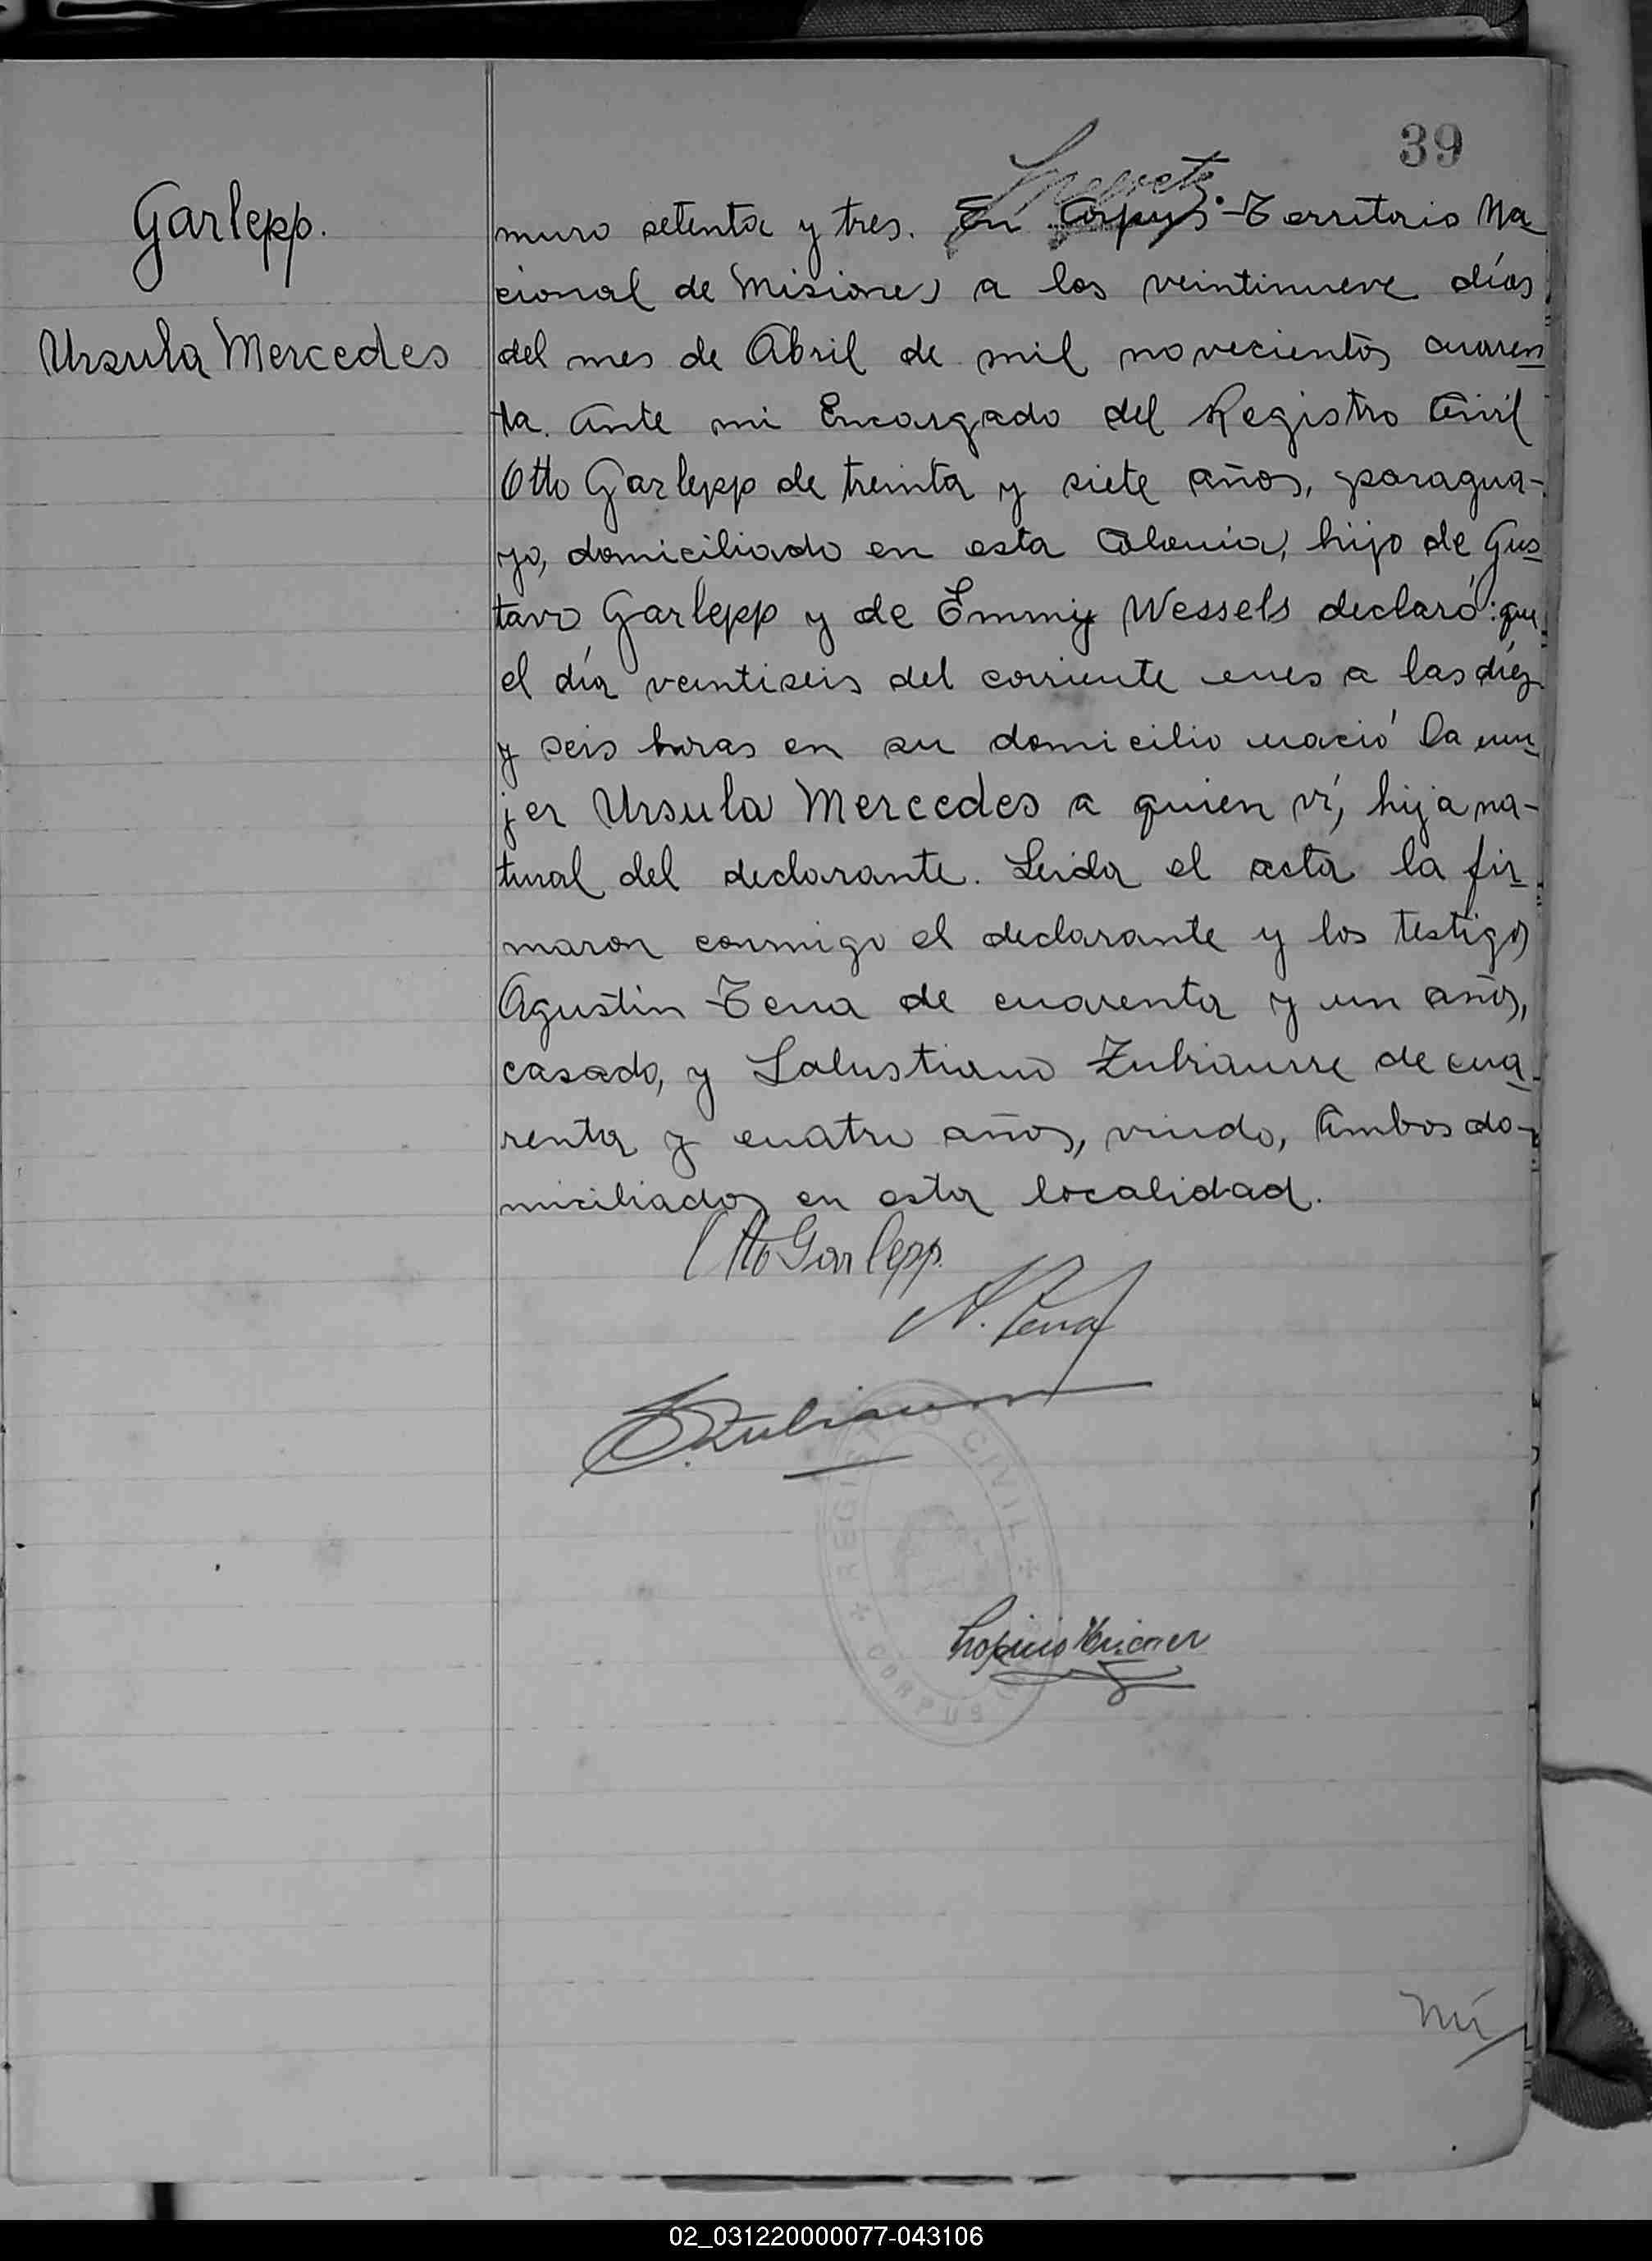 39
Garlepp.
Ursula Mercedes
muro setenta y tres. En Corpus-Territorio Na
cional de Misiones a los veintinueve días
del mes de Abril de mil novecientos cuaren
ta. Ante mi Encargado del Registro Civil
Otto Garlepp de treinta y siete años, paragua-
yo, domiciliado en esta Colonia, hijo de Gus
tavo Garlepp y de Emmy Wessels declaró: que
el día veintiseis del corriente mes a las diéz
y seis horas en su domicilio nació la mu
jer Ursula Mercedes a quien ví, hija na-
tural del declarante. Leida el acta la fir
maron conmigo el declarante y los testigos
Agustin Tena de cuarenta y un años,
casado, y Salustiano Zubiaurre de cua
renta y cuatro años, viudo, Ambos do-
miciliados en esta localidad.
Otto Garlepp.
A. Tena
S. Zubiaurre
REGISTRO CIVIL
CORPUS
Nú
02_031220000077-043106